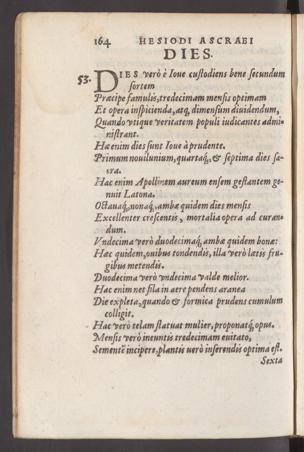 164 HESIODI ASCRAEI
DIES.
53. DIES verò è Ioue custodiens bene secundum
sortem
Præcipe famulis, tredecimam mensis optimam
Et opera inspicienda, atq; dimensum diuidendum,
Quando vtique veritatem populi iudicantes admi-
nistrant.
Hæ enim dies sunt Ioue à prudente.
Primum nouilunium, quartaq́;, & septima dies sa-
cra.
Hac enim Apollinem aureum ensem gestantem ge-
nuit Latona.
Octauaq́;, nonaq́;, ambæ quidem dies mensis
Excellenter crescentis, mortalia opera ad curan-
dum.
Vndecima verò duodecimaq́;, ambæ quidem bonæ:
Hæc quidem, ouibus tondendis, illa verò lætis fru-
gibus metendis.
Duodecima verò vndecima valde melior.
Hac enim net fila in aere pendens aranea
Die expleta, quando & formica prudens cumulum
colligit.
Hac verò telam statuat mulier, proponatq́;, opus.
Mensis verò ineuntis tredecimam euitato,
Sementē incipere, plantis verò inserendis optima est.
Sexta